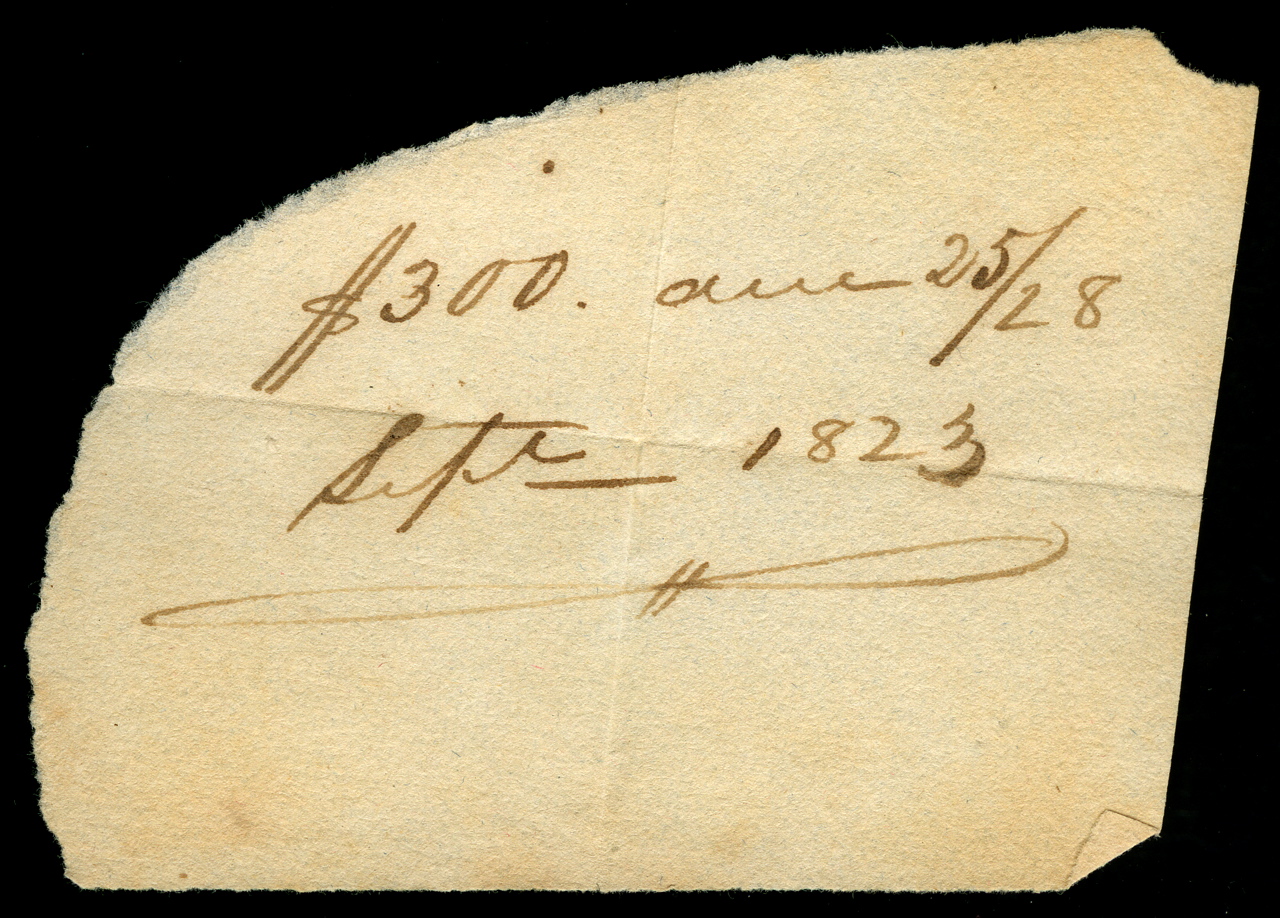 $300. due 25/28
Septr 1823